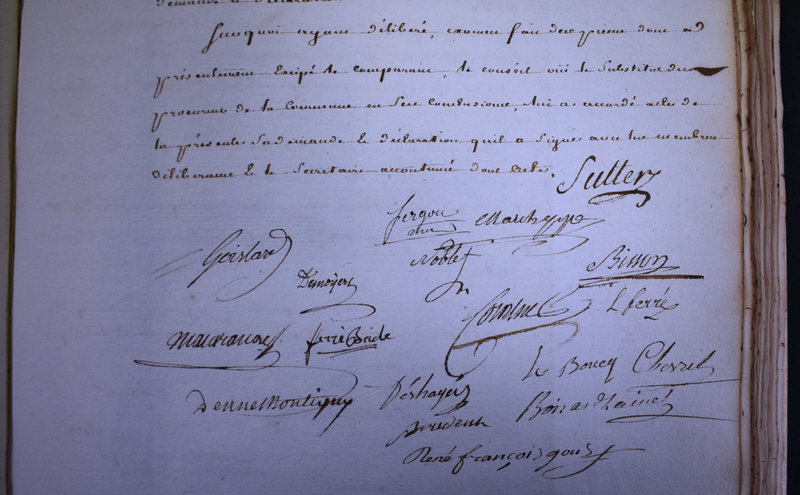 Surquoi ayant délibéré, examen fait des pieces dont a
présentement Excipé le comparant, le conseil ouï le Substitut du
procureur de la Commune en Ses Conclusions, lui a accordé acte de
la présente Sa demande & déclaration qu'il a Signé avec les membres
délibérants & le Secretaire accoutumé dont acte. Sutter
fergou Marcheppe
Goislard Noblet Bisson
Desnoyers
Comme L ferré
ferré
Le Boucq Chevril
Denne Montigny Déshayes
prudent
René françois